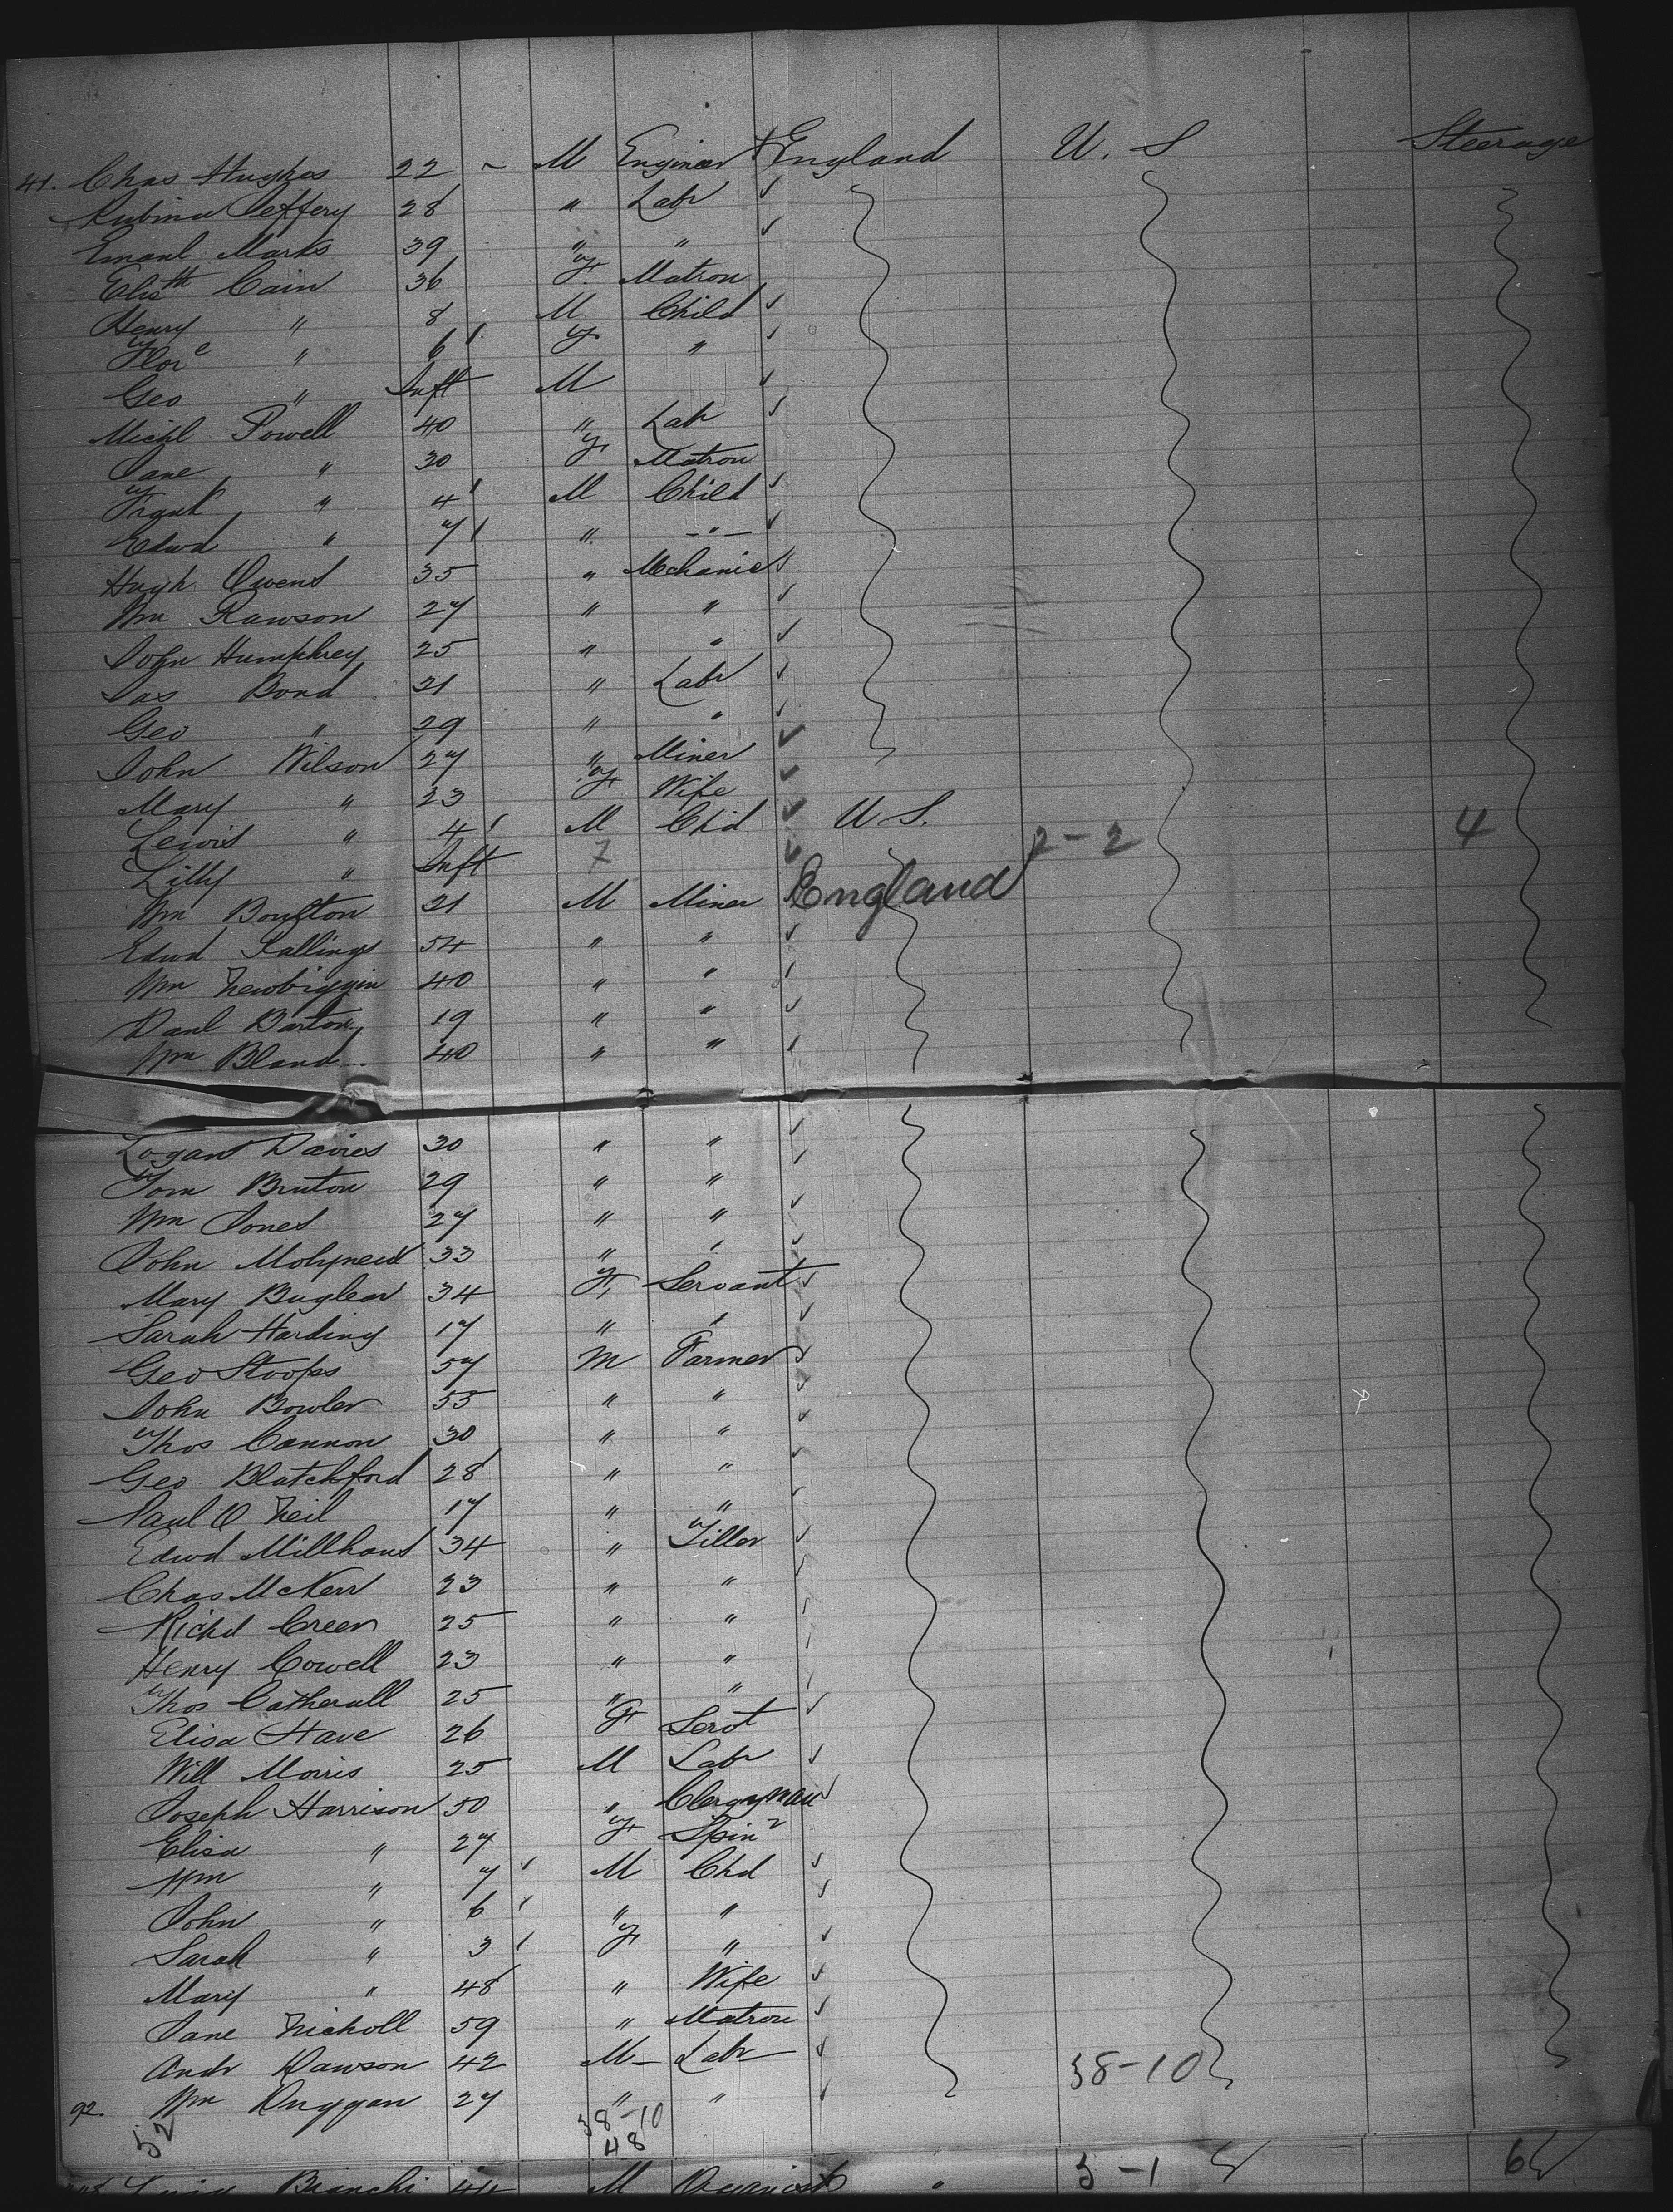 41. Chas Hughes 22 ~ M Engineer England U. S Steerage
Rubina Jeffery 28 " Labr
Emanl Marks 39 " "
Elisth Cain 36 F. Matron
Henry " 8 M Child
Flore " 6 F "
Geo " Inft M
Michl Powell 40 " Labr
Jane " 30 F Matron
Frank " 4 M Child
Edwd " 7 " - " -
Hugh Owens 35 " Mechanic
Wm Rawson 27 " "
John Humphrey 25 " "
Jas Bond 21 " Labr
Geo " 29 " "
John Wilson 27 " Miner
Mary " 23 F Wife
Lewis " 4 M Chd U S. 4
Lilly " Inft 7 2-2
Wm Boulton 21 M Miner England
Edwd 54 " "
Wm Newbiggin 40 " "
Danl Barton 19 " "
Wm Bland 40 " "
Logans Davies 30 " "
Tom Bruton 29 " "
Wm Jones 27 " "
John Molyneux 33 " "
Mary Buglear 34 F, Servant
Sarah Harding 17 " "
Geo Stoops 57 M Farmer
John Bowler 55 " "
Thos Cannon 30 " "
Geo Blatchford 28 " "
Paul O Neil 17 " "
Edwd Millhous 34 " Tiller
Chas McKerr 23 " "
Richd Green 25 " "
Henry Cowell 23 " "
Thos Catherall 25 " "
Elisa Have 26 F Servt
Will Morris 25 M Labr
Joseph Harrison 50 " Clergyman
Elisa " 27 F Spinr
Wm " 7 M Chd
John " 6 " "
Sarah " 3 F "
Mary " 48 " Wife
Jane Nicholl 59 " Matron
Andr Dawson 42 M Labr 38-10
92. Wm Duggan 27 " "
52 38-10
48
Bianchi 44 M " 5-1 6